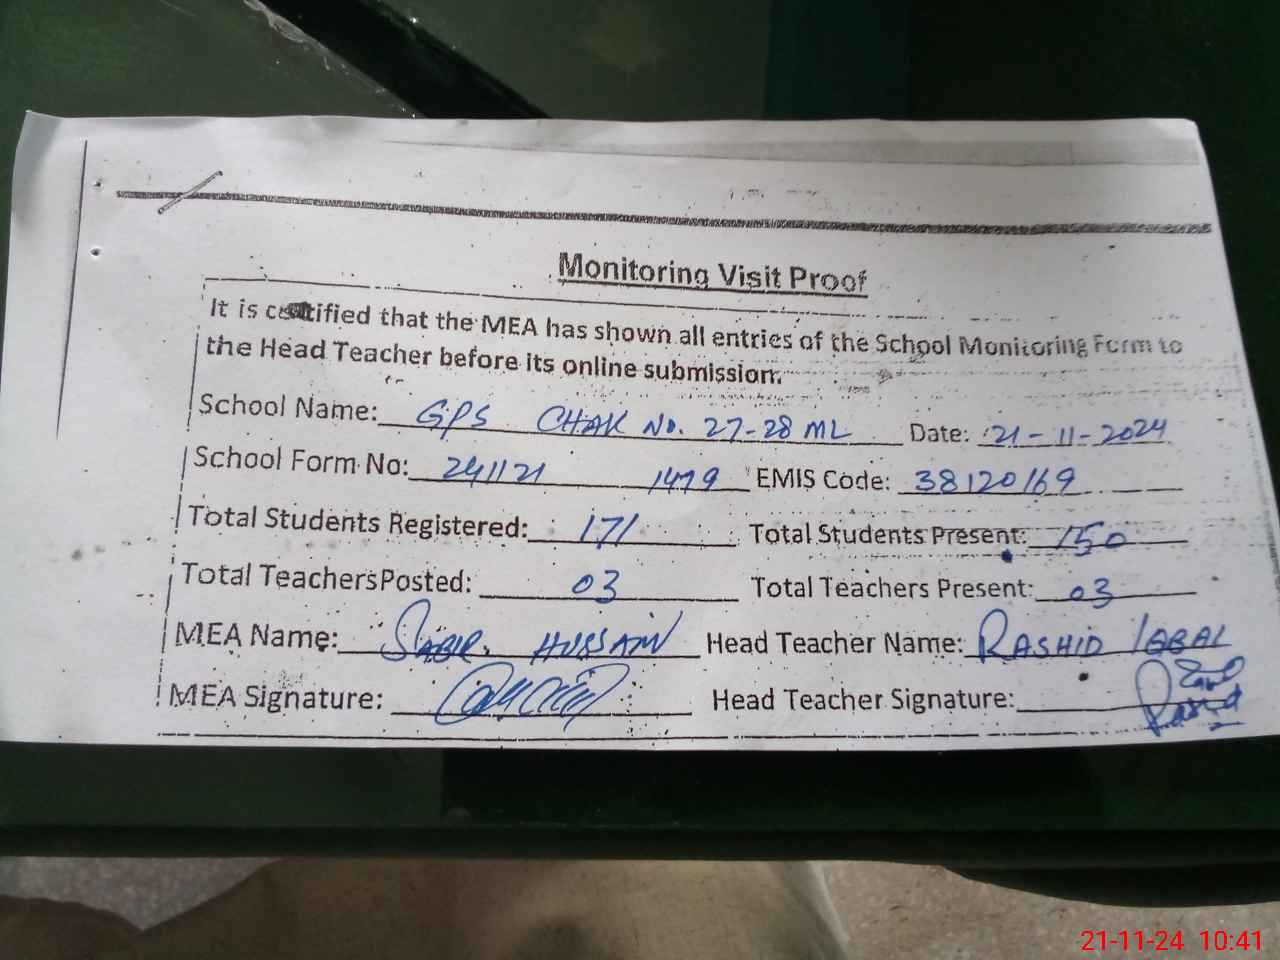 Monitoring Visit Proof
It is certified that the MEA has shown all entries of the School Monitoring Form to
the Head Teacher before its online submission.
School Name: GPS CHAK No. 27-28 ML Date: 21-11-2024
School Form No: 241121 1479 EMIS Code: 38120169
Total Students Registered: 171 Total Students Present: 150
Total Teachers Posted: 03 Total Teachers Present: 03
MEA Name: SABIR HUSSAIN Head Teacher Name: RASHID IQBAL
MEA Signature: Head Teacher Signature:
21-11-24 10:41